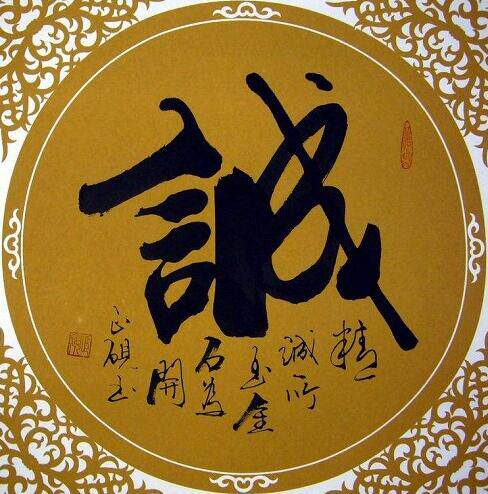 誠
精
誠所
至金
石為
開